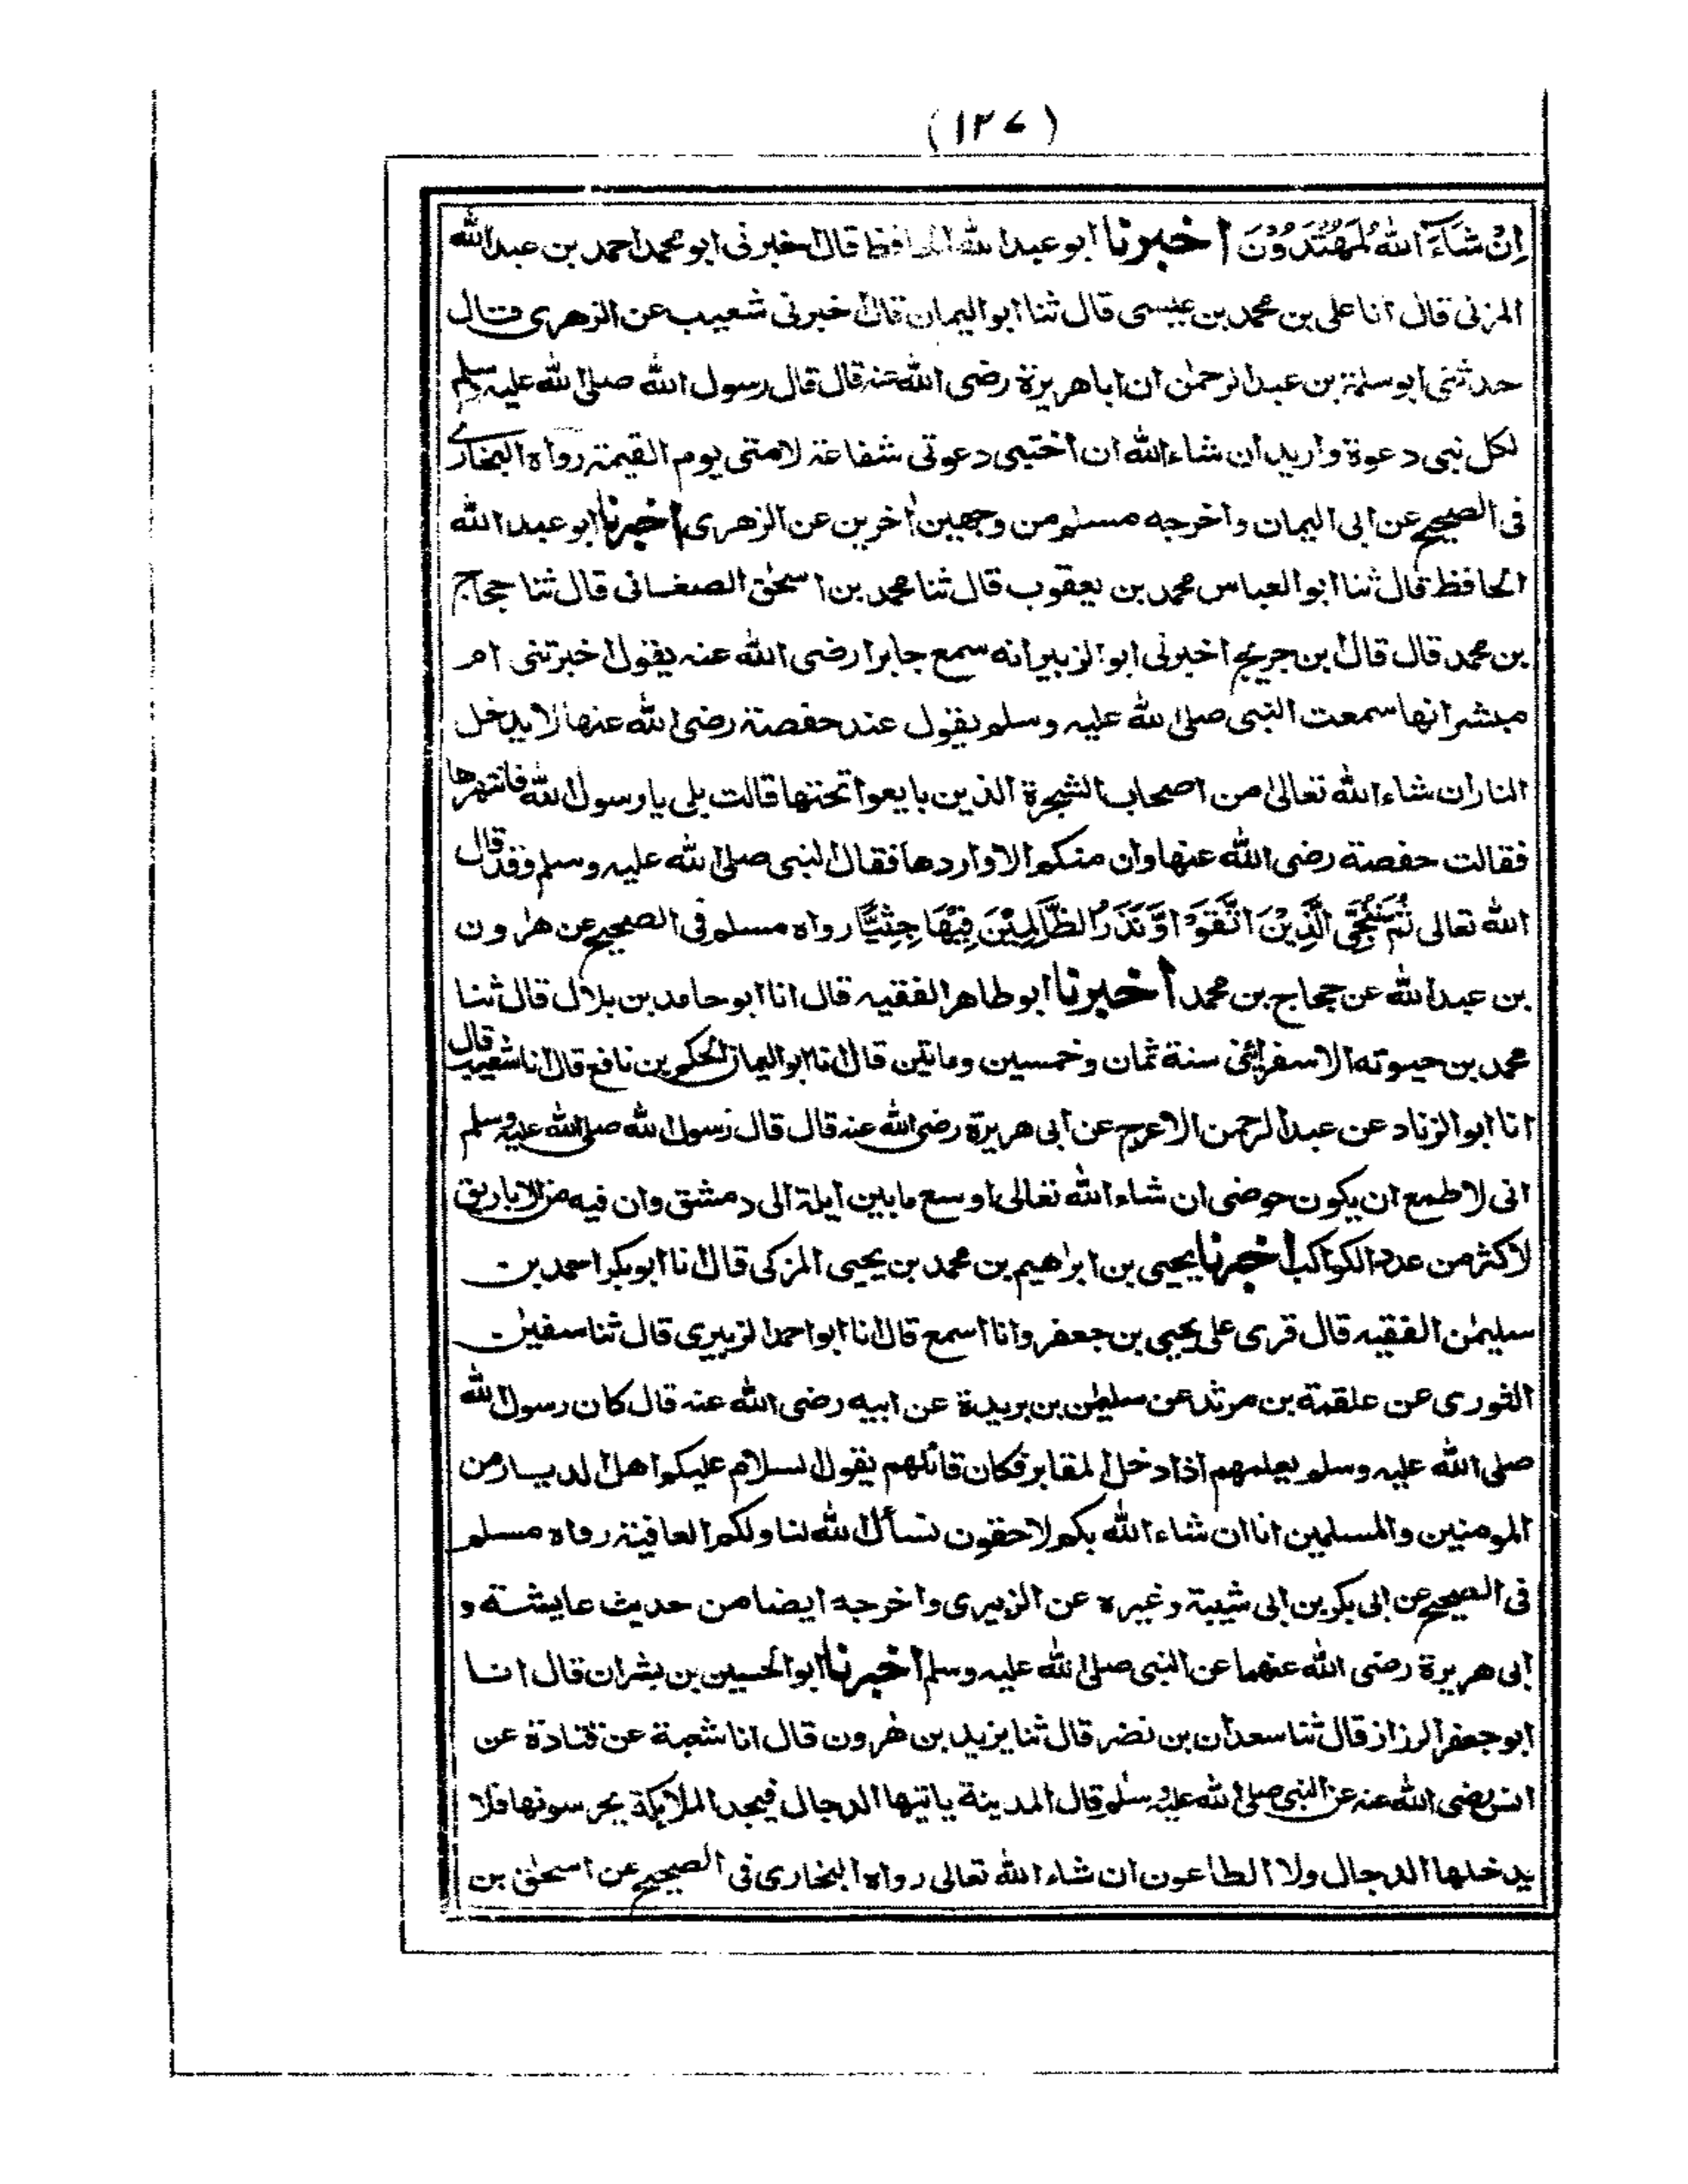 (١٢٧)
اِنْ شَآءَ اللّٰهُ لَمُهْتَدُوْنَ اخبرنا ابو عبد الله الحافظ قال اخبرنی ابو محمد احمد بن عبد الله
المزنی قال انا علی بن محمد بن عیسی قال ثنا ابو الیمان قال اخبرنی شعیب عن الزهری قال
حدثنی ابو سلمة بن عبد الرحمٰن ان ابا هریرة رضی الله عنه قال قال رسول الله صلی الله علیه وسلم
لکل نبی دعوة وارید ان شاء الله ان اختبی دعوتی شفاعة لامتی یوم القیمة رواه البخاری
فی الصحیح عن ابی الیمان واخرجه مسلم من وجهین اٰخرین عن الزهری اخبرنا ابو عبد الله
الحافظ قال ثنا ابو العباس محمد بن یعقوب قال ثنا محمد بن اسحٰق الصغانی قال ثنا حجاج
بن محمد قال قال ابن جریج اخبرنی ابو الزبیر انه سمع جابرا رضی الله عنه یقول اخبرتنی ام
مبشر انها سمعت النبی صلی الله علیه وسلم یقول عند حفصة رضی الله عنها لا یدخل
النار ان شاء الله تعالیٰ من اصحاب الشجرة الذین بایعوا تحتها قالت بلی یا رسول الله فانتهرها
فقالت حفصة رضی الله عنها وان منکم الا واردها فقال النبی صلی الله علیه وسلم وقد قال
الله تعالی ثُمَّ نُنَجِّی الَّذِیْنَ اتَّقَوْا وَّنَذَرُ الظَّالِمِیْنَ فِیْهَا جِثِیًّا رواه مسلم فی الصحیح عن هٰرون
بن عبد الله عن حجاج بن محمد اخبرنا ابو طاهر الفقیه قال انا ابو حامد بن بلال قال ثنا
محمد بن حیوته الاسفرائنی سنة ثمان وخمسین ومائتین قال انا ابو الیمان الحکم بن نافع قال انا شعیب قال
انا ابو الزناد عن عبد الرحمن الاعرج عن ابی هریرة رضی الله عنه قال قال رسول الله صلی الله علیه وسلم
انی لاطمع ان یکون حوضی ان شاء الله تعالی اوسع ما بین ایلة الی دمشق وان فیه من الاباریق
لاکثر من عدد الکواکب اخبرنا یحیی بن ابرٰهیم بن محمد بن یحیی المزکی قال انا ابو بکر احمد بن
سلیمٰن الفقیه قال قری علی یحیی بن جعفر وانا اسمع قال انا ابو احمد الزبیری قال ثنا سفیٰن
الثوری عن علقمة بن مرثد عن سلیمٰن بن بریدة عن ابیه رضی الله عنه قال کان رسول الله
صلی الله علیه وسلم یعلمهم اذا دخل المقابر فکان قائلهم یقول السلام علیکم اهل الدیار من
المومنین والمسلمین انا ان شاء الله بکم لاحقون نسأل الله لنا ولکم العافیة رواه مسلم
فی الصحیح عن ابی بکر بن ابی شیبة وغیره عن الزبیری واخرجه ایضا من حدیث عایشة و
ابی هریرة رضی الله عنهما عن النبی صلی الله علیه وسلم اخبرنا ابو الحسین بن بشران قال انا
ابو جعفر الرزاز قال ثنا سعدان بن نضر قال ثنا یزید بن هٰرون قال انا شعبة عن قتادة عن
انس رضی الله عنه عن النبی صلی الله علیه وسلم قال المدینة یاتیها الدجال فیجد الملایکة یحرسونها فلا
یدخلها الدجال ولا الطاعون ان شاء الله تعالی رواه البخاری فی الصحیح عن اسحٰق بن